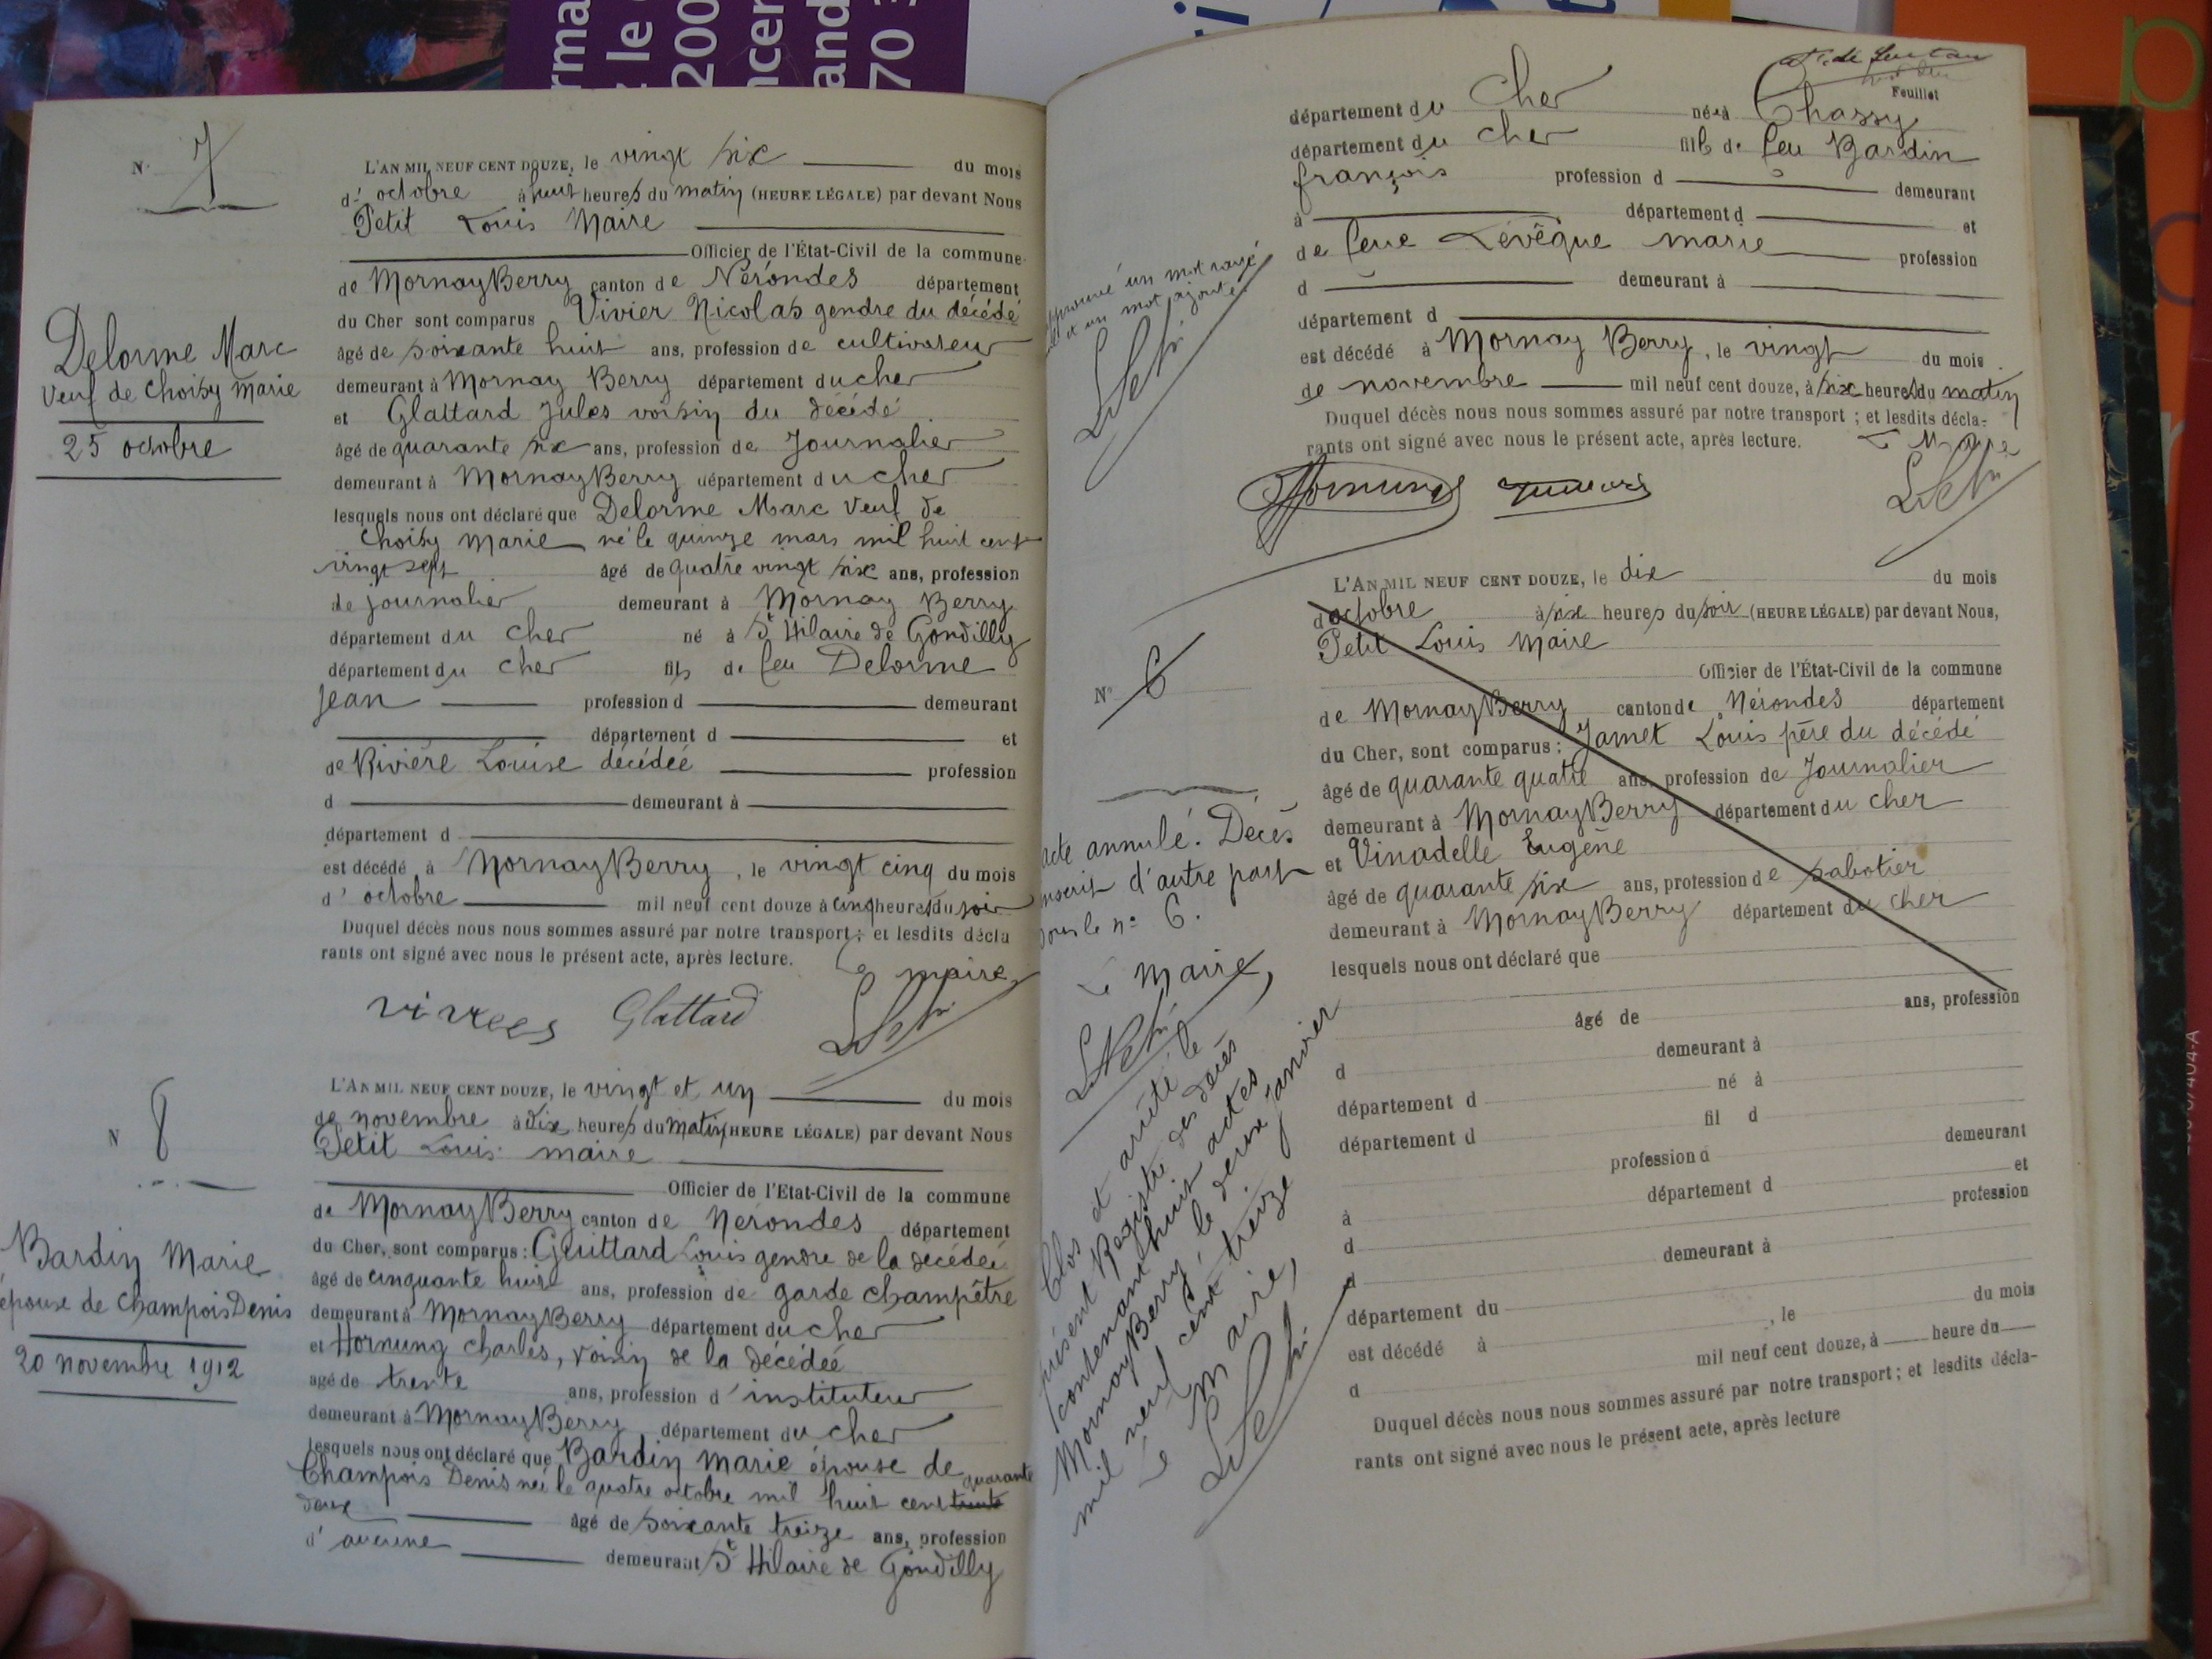 N° 7
Delorme Marc
Veuf de Choisy Marie
25 octobre
L'AN MIL NEUF CENT DOUZE, le vingt six du mois
d'octobre à huit heures du matin (HEURE LÉGALE) par devant Nous
Petit Louis Maire
Officier de l'État-Civil de la commune
de Mornay Berry canton de Nérondes département
du Cher sont comparus Vivier Nicolas gendre du décédé
âgé de soixante huit ans, profession de cultivateur
demeurant à Mornay Berry département du cher
et Glattard Jules voisin du décédé
âgé de quarante six ans, profession de Journalier
demeurant à Mornay Berry département du cher
lesquels nous ont déclaré que Delorme Marc Veuf de
Choisy Marie né le quinze mars mil huit cent
vingt sept âgé de quatre vingt six ans, profession
de journalier demeurant à Mornay Berry
département du cher né à St Hilaire de Gondilly
département du cher fils de feu Delorme
Jean profession d demeurant
département d et
de Rivière Louise décédée profession
d demeurant à
département d
est décédé à Mornay Berry, le vingt cinq du mois
d'octobre mil neuf cent douze à cinq heures du soir
Duquel décès nous nous sommes assuré par notre transport; et lesdits décla
rants ont signé avec nous le présent acte, après lecture.
Le maire
Glattard
N 8
Bardin Marie
épouse de Champois Denis
20 novembre 1912
L'AN MIL NEUF CENT DOUZE, le vingt et un du mois
de novembre à dix heures du matin (HEURE LÉGALE) par devant Nous
Petit Louis maire
Officier de l'Etat-Civil de la commune
de Mornay Berry canton de Nérondes département
du Cher, sont comparus: Guittard Louis gendre de la décédée
âgé de cinquante huit ans, profession de garde champêtre
demeurant à Mornay Berry département du cher
et Hornung Charles, voisin de la décédée
agé de trente ans, profession d'instituteur
demeurant à Mornay Berry département du cher
lesquels nous ont déclaré que Bardin Marie épouse de
Champois Denis née le quatre octobre mil huit cent trente quarante
deux âgé de soixante treize ans, profession
d'aucune demeurant St Hilaire de Gondilly
Feuillet
département du Cher née à Chassy
département du cher fille de feu Bardin
françois profession d demeurant
à département d et
de feue Levêque marie profession
d demeurant à
département d
est décédé à Mornay Berry, le vingt du mois
de novembre mil neuf cent douze, à six heures du matin
Duquel décès nous nous sommes assuré par notre transport; et lesdits décla-
rants ont signé avec nous le présent acte, après lecture. Le Maire
Hornung
approuvé un mot rayé
et un mot ajouté
N° 6
L'AN MIL NEUF CENT DOUZE, le dix du mois
d'octobre à six heures du soir (HEURE LÉGALE) par devant Nous,
Petit Louis Maire
Officier de l'État-Civil de la commune
de Mornay Berry canton de Nérondes département
du Cher, sont comparus: Jamet Louis père du décédé
âgé de quarante quatre ans, profession de Journalier
demeurant à Mornay Berry département du cher
et Vinadelle Eugène
âgé de quarante six ans, profession de sabotier
demeurant à Mornay Berry département du cher
lesquels nous ont déclaré que
âgé de ans, profession
d demeurant à
département d né à
département d fil d
profession d demeurant
à département d et
d profession
d demeurant à
département du
est décédé à , le du mois
d mil neuf cent douze, à heure du
Duquel décès nous nous sommes assuré par notre transport; et lesdits décla-
rants ont signé avec nous le présent acte, après lecture
acte annulé. Décès
inscrit d'autre part
sous le n° 6.
Le Maire,
Clos et arrêté le
présent Registre des décès
contenant huit actes
Mornay Berry, le deux janvier
mil neuf cent treize
Le Maire,